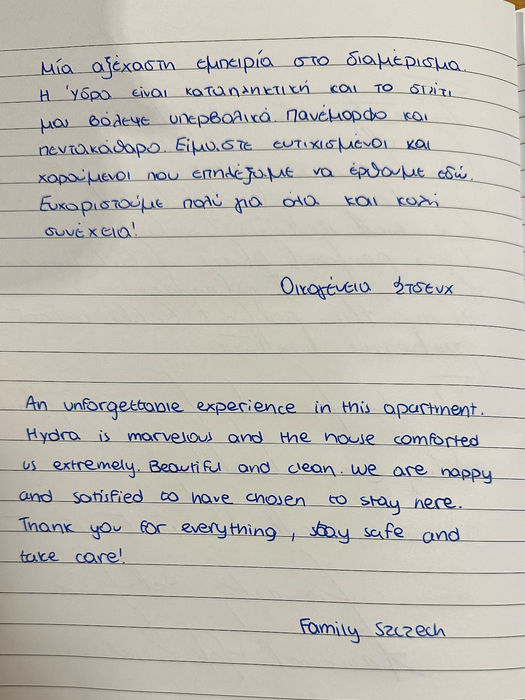 Μία αξέχαστη εμπειρία στο διαμέρισμα.
Η Ύδρα είναι καταπληκτική και το σπίτι
μας βόλεψε υπερβολικά. Πανέμορφο και
πεντακάθαρο. Είμαστε ευτιχισμένοι και
χαρούμενοι που επηλέξαμε να έρθουμε εδώ.
Ευχαριστούμε πολύ για όλα και καλή
συνέχεια!
Οικογένεια Στσευχ
An unforgettable experience in this apartment.
Hydra is marvelous and the house comforted
us extremely. Beautiful and clean. We are happy
and satisfied to have chosen to stay here.
Thank you for everything, stay safe and
take care!
Family Szczech